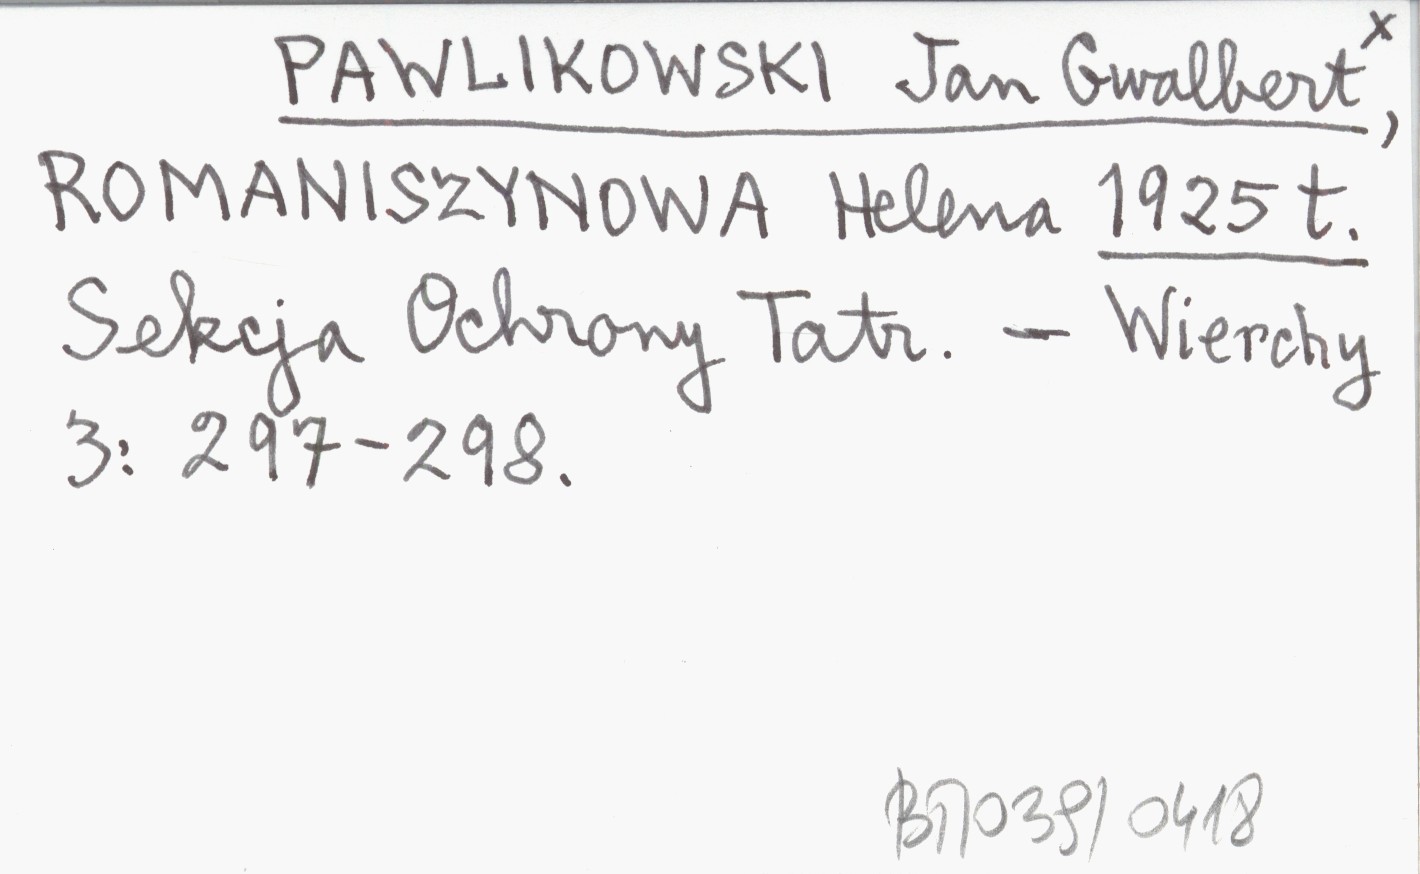 PAWLIKOWSKI Jan Gwalbert x,
ROMANISZYNOWA Helena 1925 t.
Sekcja Ochrony Tatr. — Wierchy
3: 297-298.
0418